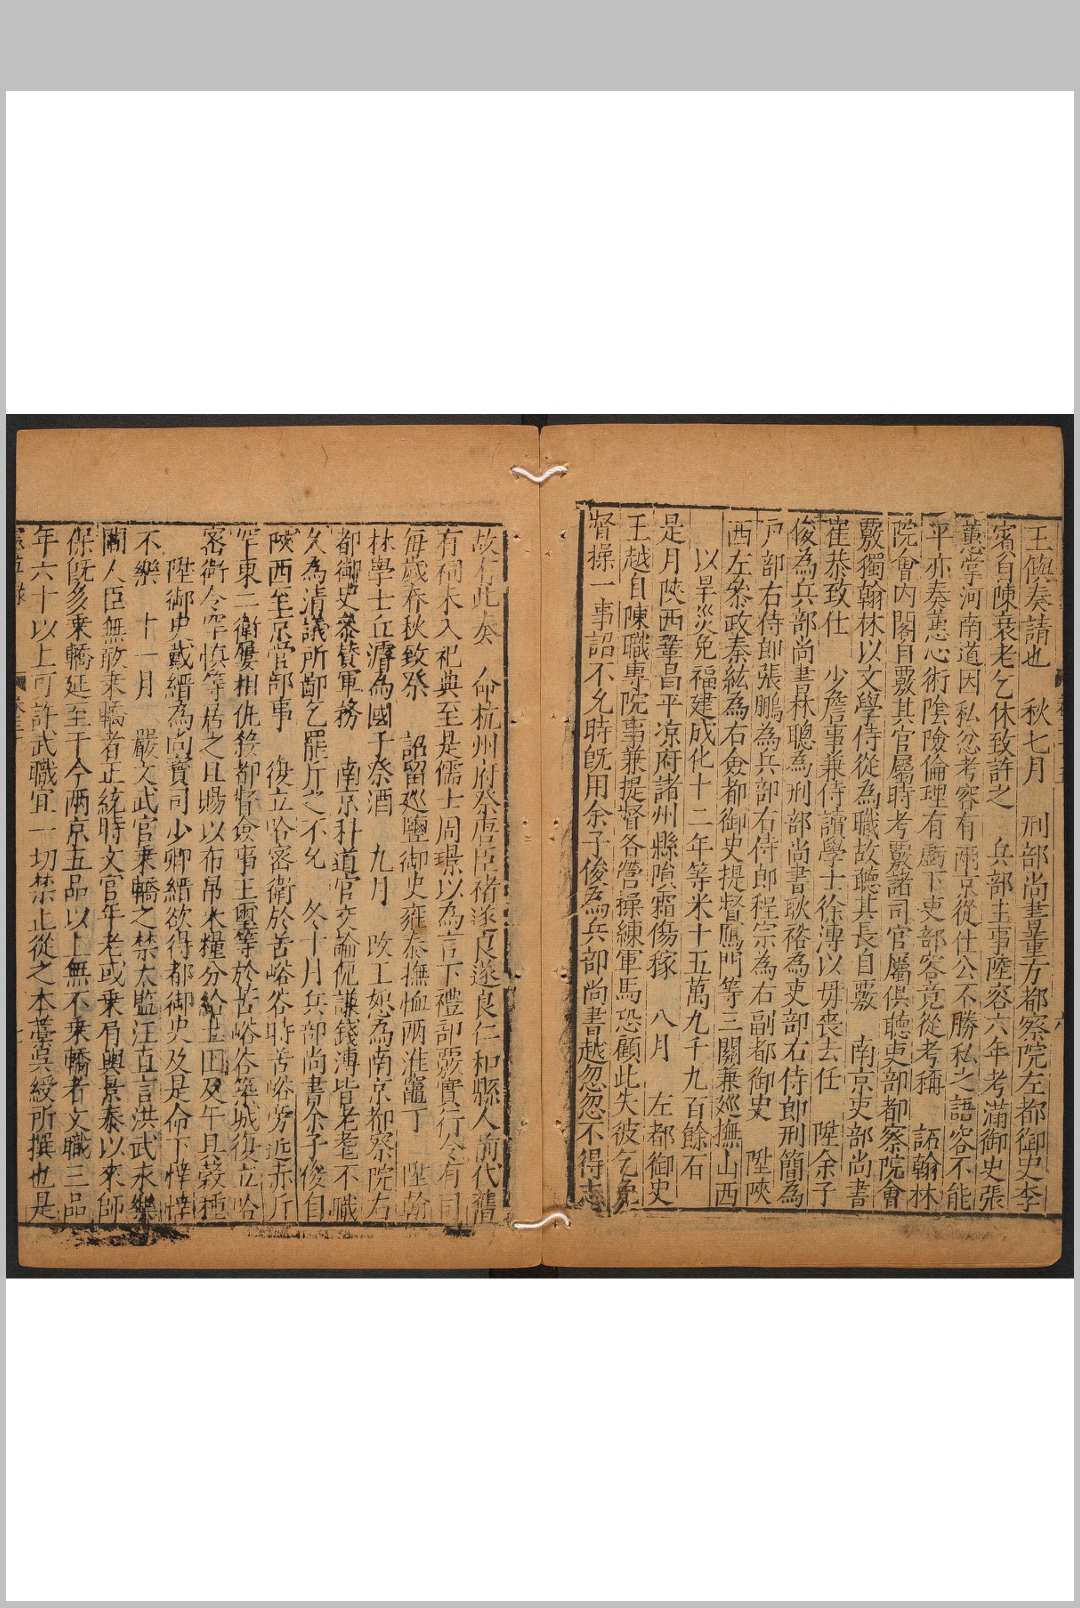 王儼奏請也　秋七月　刑部尚書董方都察院左都御史李
賓自陳衰老乞休致許之　兵部主事陸容六年考滿御史張
蕙掌河南道因私忿考容有兩京從仕公不勝私之語容不能
平亦奏蕙心術陰險倫理有虧下吏部容竟從考稱　詔翰林
院會內閣自覈其官屬時考覈諸司官屬俱聽吏部都察院會
覈獨翰林以文學侍從為職故聽其長自覈　南京吏部尚書
崔恭致仕　少詹事兼侍讀學士徐溥以毋喪去任　陞余子
俊為兵部尚書林聰為刑部尚書耿裕為吏部右侍郎刑簡為
戶部右侍郎張鵬為兵部右侍郎程宗為右副都御史　陞陝
西左叅政秦紘為右僉都御史提督鴈門等三關兼廵撫山西
以旱災免福建成化十二年等米十五萬九千九百餘石
是月陝西鞏昌平凉府諸州縣隕霜傷稼　八月　左都御史
王越自陳職專院事兼提督各營操練軍馬恐顧此失彼乞免
督操一事詔不允時既用余子俊為兵部尚書越忽忽不得志
故有此奏　命杭州府祭唐臣褚遂良遂良仁和縣人前代舊
有祠未入祀典至是儒士周璟以為言下禮部覈實行令有司
每歲春秋致祭　詔留廵鹽御史雍泰撫恤兩淮竈丁　陞翰
林學士丘濬為國子祭酒　九月　改王恕為南京都察院右
都御史叅贊軍務　南京科道官交論倪謙錢溥皆老耄不職
久為清議所鄙乞罷斥之不允　冬十月兵部尚書余子俊自
陝西至京管部事　復立哈密衛於苦峪谷時苦峪旁近赤斤
罕東二衛屢相仇殺都督僉事王璽等於苦峪谷築城復立哈
密衛令罕慎等居之且賜以布帛米糧分給土田及午具穀種
陞御史戴縉為尚寶司少卿縉欲得都御史及是命下悻悻
不樂　十一月　嚴文武官乗轎之禁太監汪直言洪武永樂
間人臣無敢乗轎者正統時文官年老或乗肩輿景泰以來師
保既多乗轎延至于今兩京五品以上無不乗轎者文職三品
年六十以上可許武職宜一切禁止從之本藁吳綬所撰也是